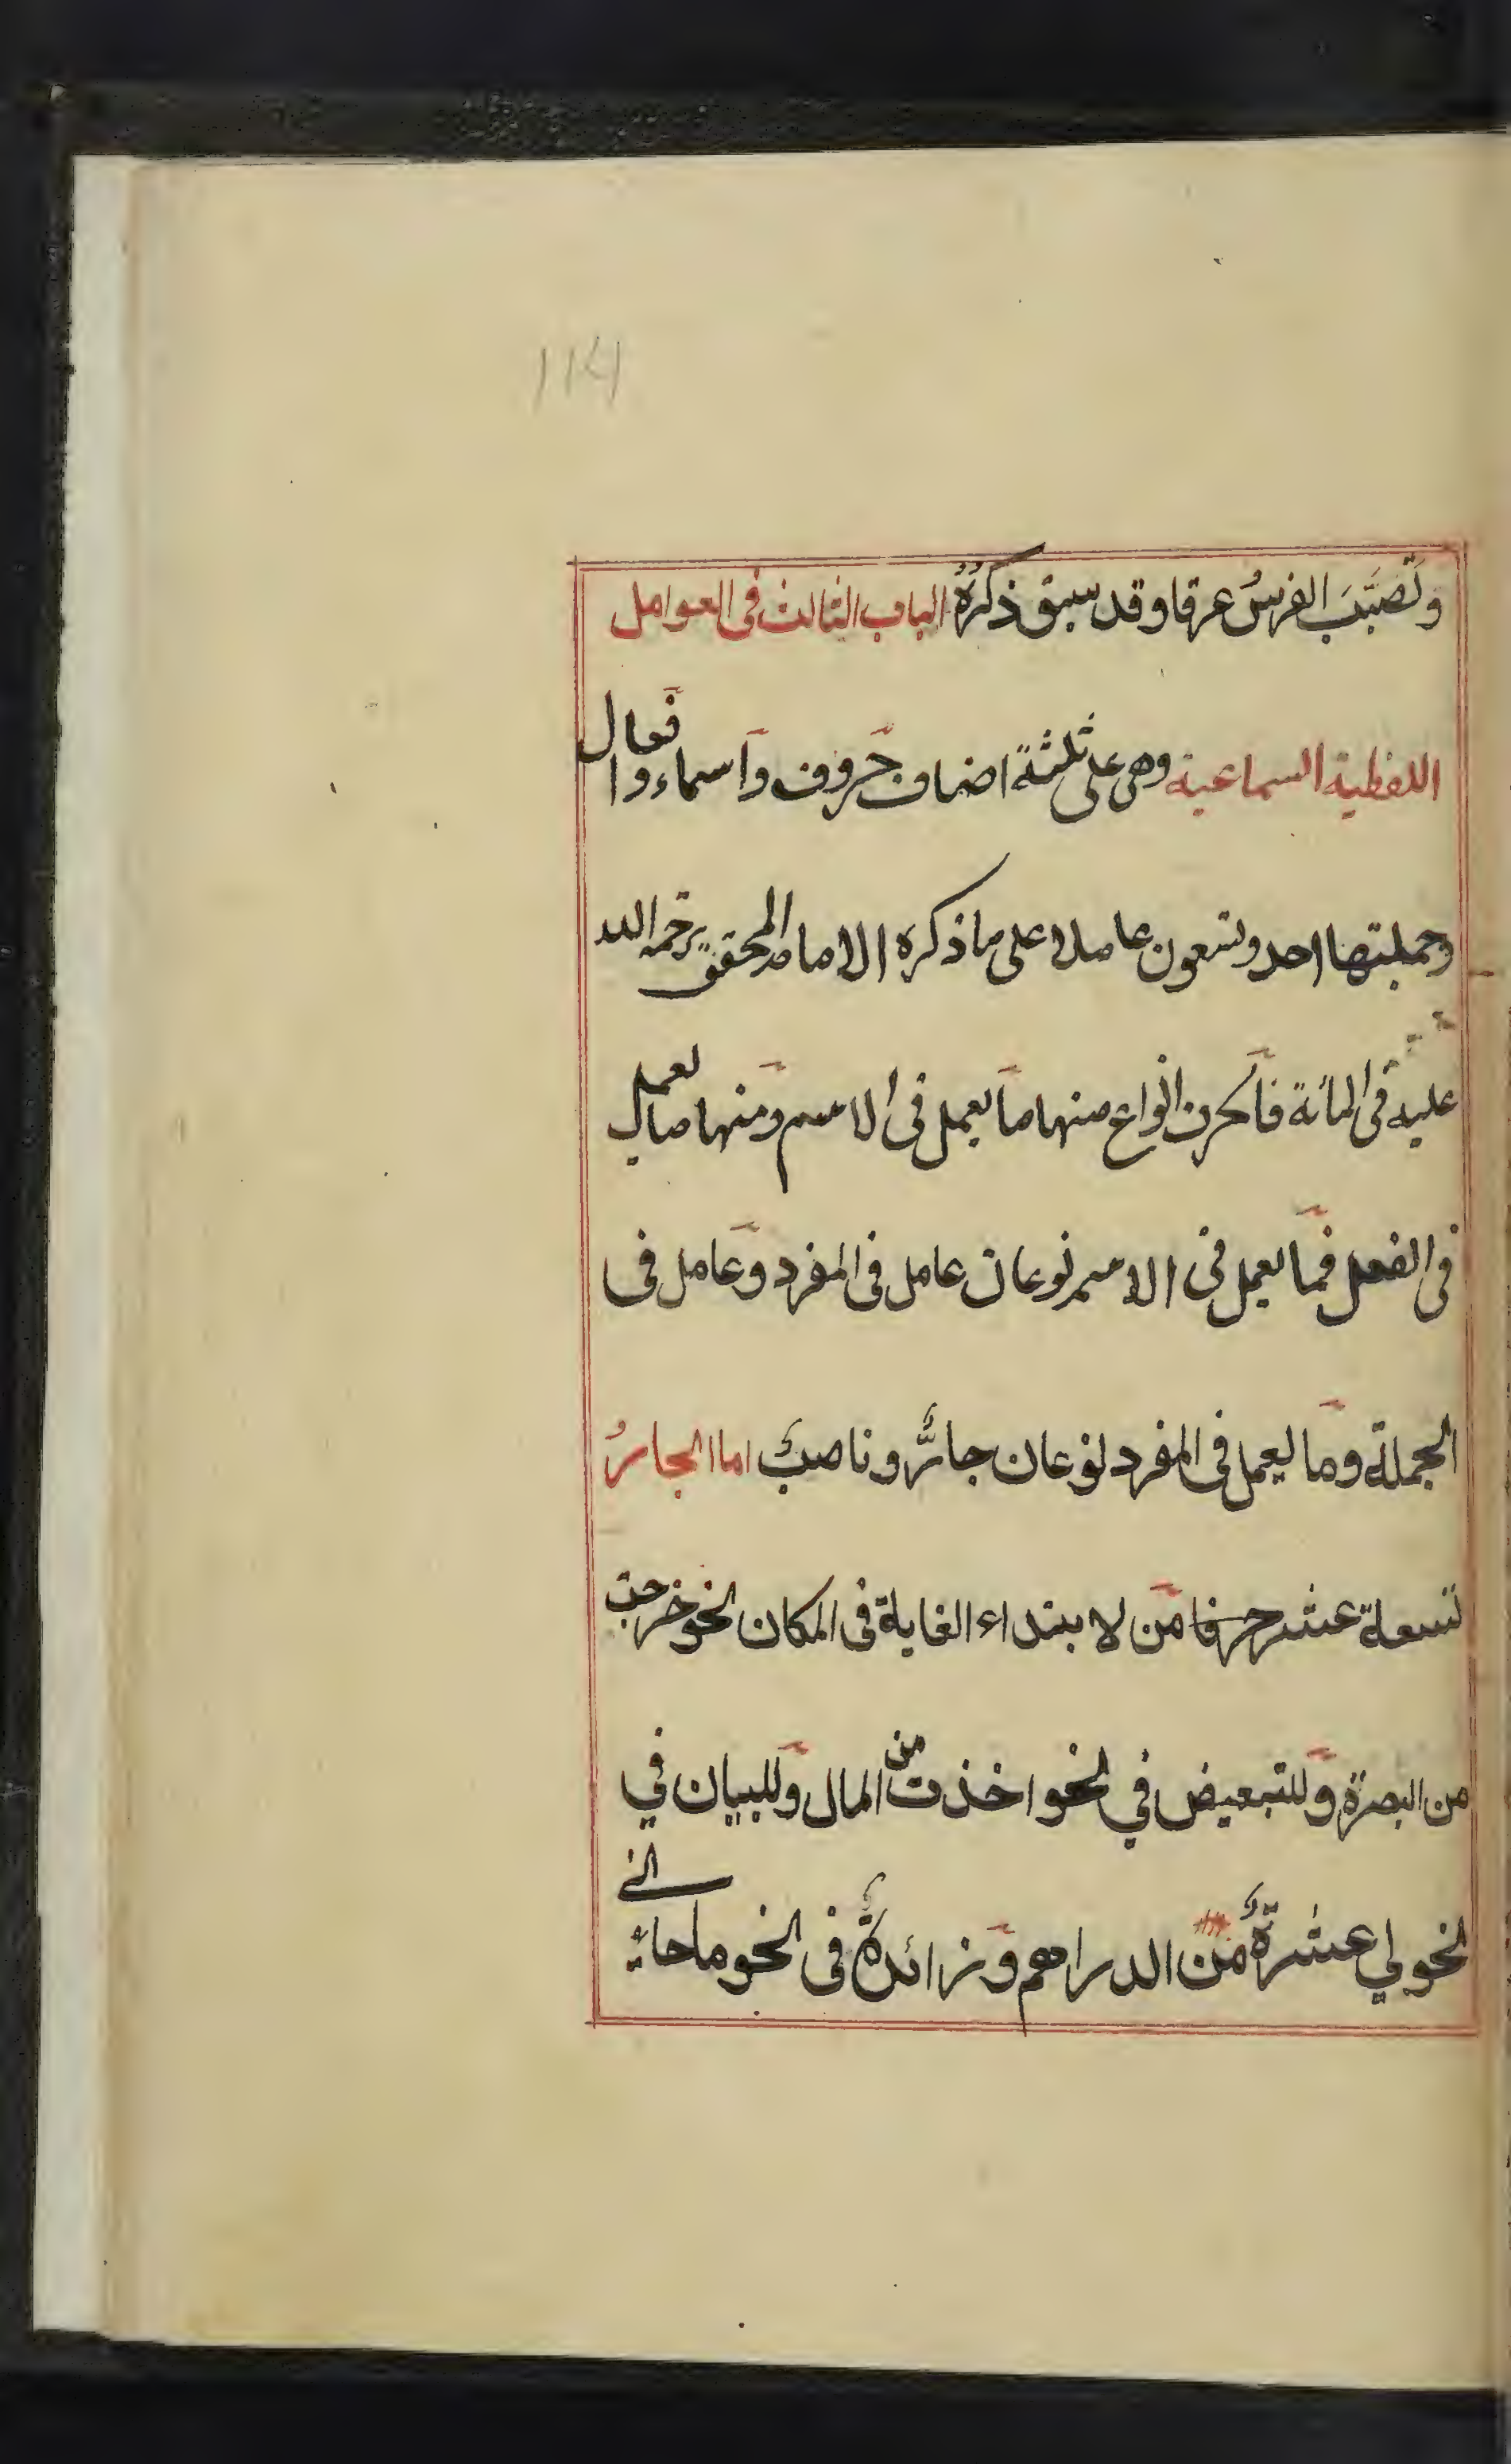 وتَصَبَّبَ الفرسُ عرقا وقد سبق ذكرُهُ الباب الثالث فى العوامل
اللفظية السماعية وهى على ثلثة اصناف حروف واسماء وافعال
وجملتها احد وتسعون عاملا على ما ذكره الامام المحقق رحمة الله
عليه فى المائة فالحرف انواع منها ما يعمل فى الاسم ومنها ما يعمل
فى الفعل فما يعمل فى الاسم نوعان عامل فى المفرد وعامل فى
الجملة وما يعمل فى المفرد نوعان جارٌّ وناصبٌ اما الجارُ
تسعة عشر حرفا من لابتداء الغاية فى المكان نحو خرجت
من البصرة وللتبعيض في نحو اخذت من المال وللبيان في
نحو لي عشرةٌ من الدراهم وزائدةٌ فى نحو ما جائنى